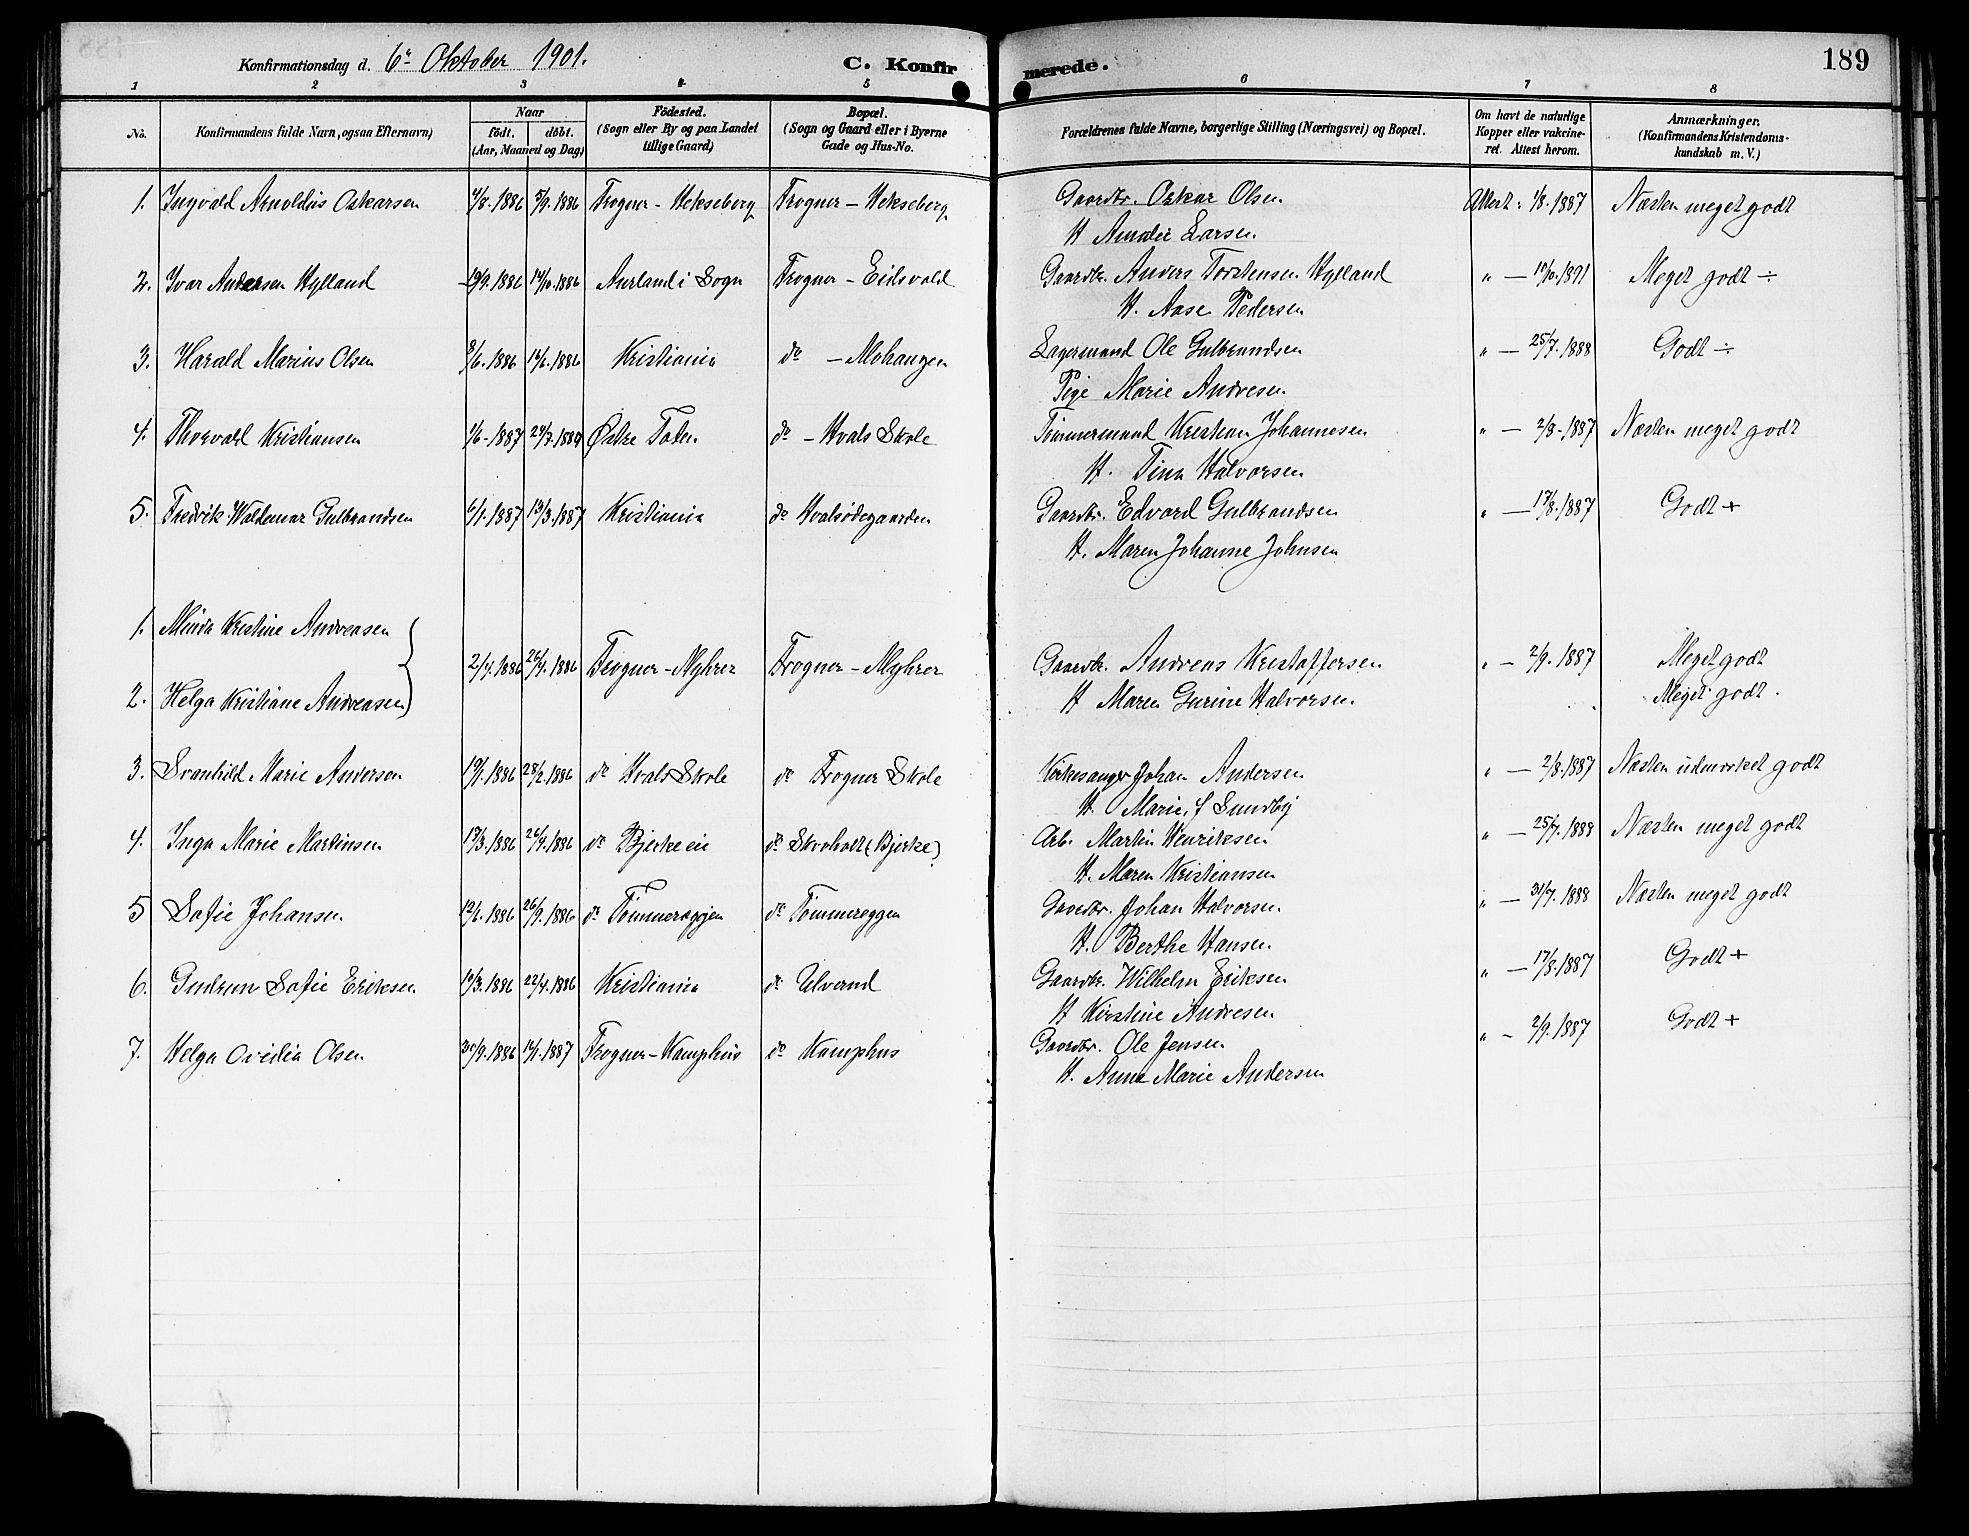 Konfirmationsdag d. 6te Oktober 1901. C. Konfirmerede. 189
1 2 3 4 5 6 7 8
No. Konfirmandens fulde Navn, ogsaa Efternavn) Naar født. døbt. (Aar, Maaned og Dag) Födested. (Sogn eller By og paa Landet tillige Gaard) Bopæl. (Sogn og Gaard eller i Byerne Gade og Hus-No. Forældrenes fulde Navne, borgerlige Stilling (Næringsvei) og Bopæl. Om havt de naturlige Kopper eller vakcineret. Attest herom. Anmærkninger. (Konfirmandens Kristendomskundskab m. V.)
1. Ingvald Arnoldus Oskarsen 4/8. 1886 5/9. 1886 Frogner - Hekseberg Frogner - Hekseberg Gaardbr. Oskar Olsen Attest: 1/8. 1887 Næsten meget godt
H Amalie Larsen.
2. Ivar Andersen Hylland 19/9. 1886 14/10. 1886 Aurland i Sogn Frogner - Eidsvold Gaardbr. Anders Torstensen Hylland " — 17/10. 1891 Meget godt ÷
H. Aase Pedersen
3. Harald Marius Olsen 3/6. 1886 14/6. 1886 Kristiania do - Mohaugen Lagermand Ole Gulbrandsen " — 25/7. 1888 Godt ÷
Pige Marie Andresen
4. Thorvald Kristiansen 1/6 - 1887 24/7. 1887 Østre Toten do - Hvals Skole Tömmermand Kristian Johannesen " — 2/8 - 1887 Næsten meget godt
H. Tina Halvorsen
5. Fredrik Waldemar Gulbrandsen 6/1. 1887 13/3. 1887 Kristiania do Hvalsødegaarden Gaardbr. Edvard Gulbrandsen " — 17/8. 1887 Godt +
H. Maren Johanne Johnsen
1. Minda Kristine Andreasen
2/4. 1886 26/4. 1886 Frogner - Myhrer Frogner - Myhrer Gaardbr. Andreas Kristoffersen " — 2/9. 1887 Meget godt
2. Helga Kristiane Andreasen H Maren Gurine Halvorsen. Meget godt.
3. Svanhild Marie Andersen 19/1. 1886 28/2. 1886 do Hvals Skole do Frogner Skole Kirkesanger Johan Andersen " — 2/8. 1887 Næsten udmerket godt
H. Marie, f Sundby
4. Inga Marie Martinsen 17/3. 1886 26/9. 1886 do Bjerke eie do Skovholt (Bjerke) Arb. Martin Henriksen " — 25/7. 1888 Næsten meget godt
H. Maren Kristiansen
5 Sofie Johansen 1886 26/9. 1886 do Tömmereggen do Tömmereggen Gaardbr. Johan Halvorsen. " — 31/7. 1888 Næsten meget godt
H. Berthe Hansen.
6. Gudrun Sofie Eriksen 19/3. 1886 22/4. 1886 Kristiania do Ulverud Gaardbr. Wilhelm Eriksen " — 17/8. 1887 Godt +
H Kirstine Andresen
7. Helga Ovidia Olsen 30/9. 1886 1887 Frogner - Kamphus do Kamphus Gaardbr. Ole Jensen " - 2/9. 1887 Godt +
H. Anne Marie Andersen